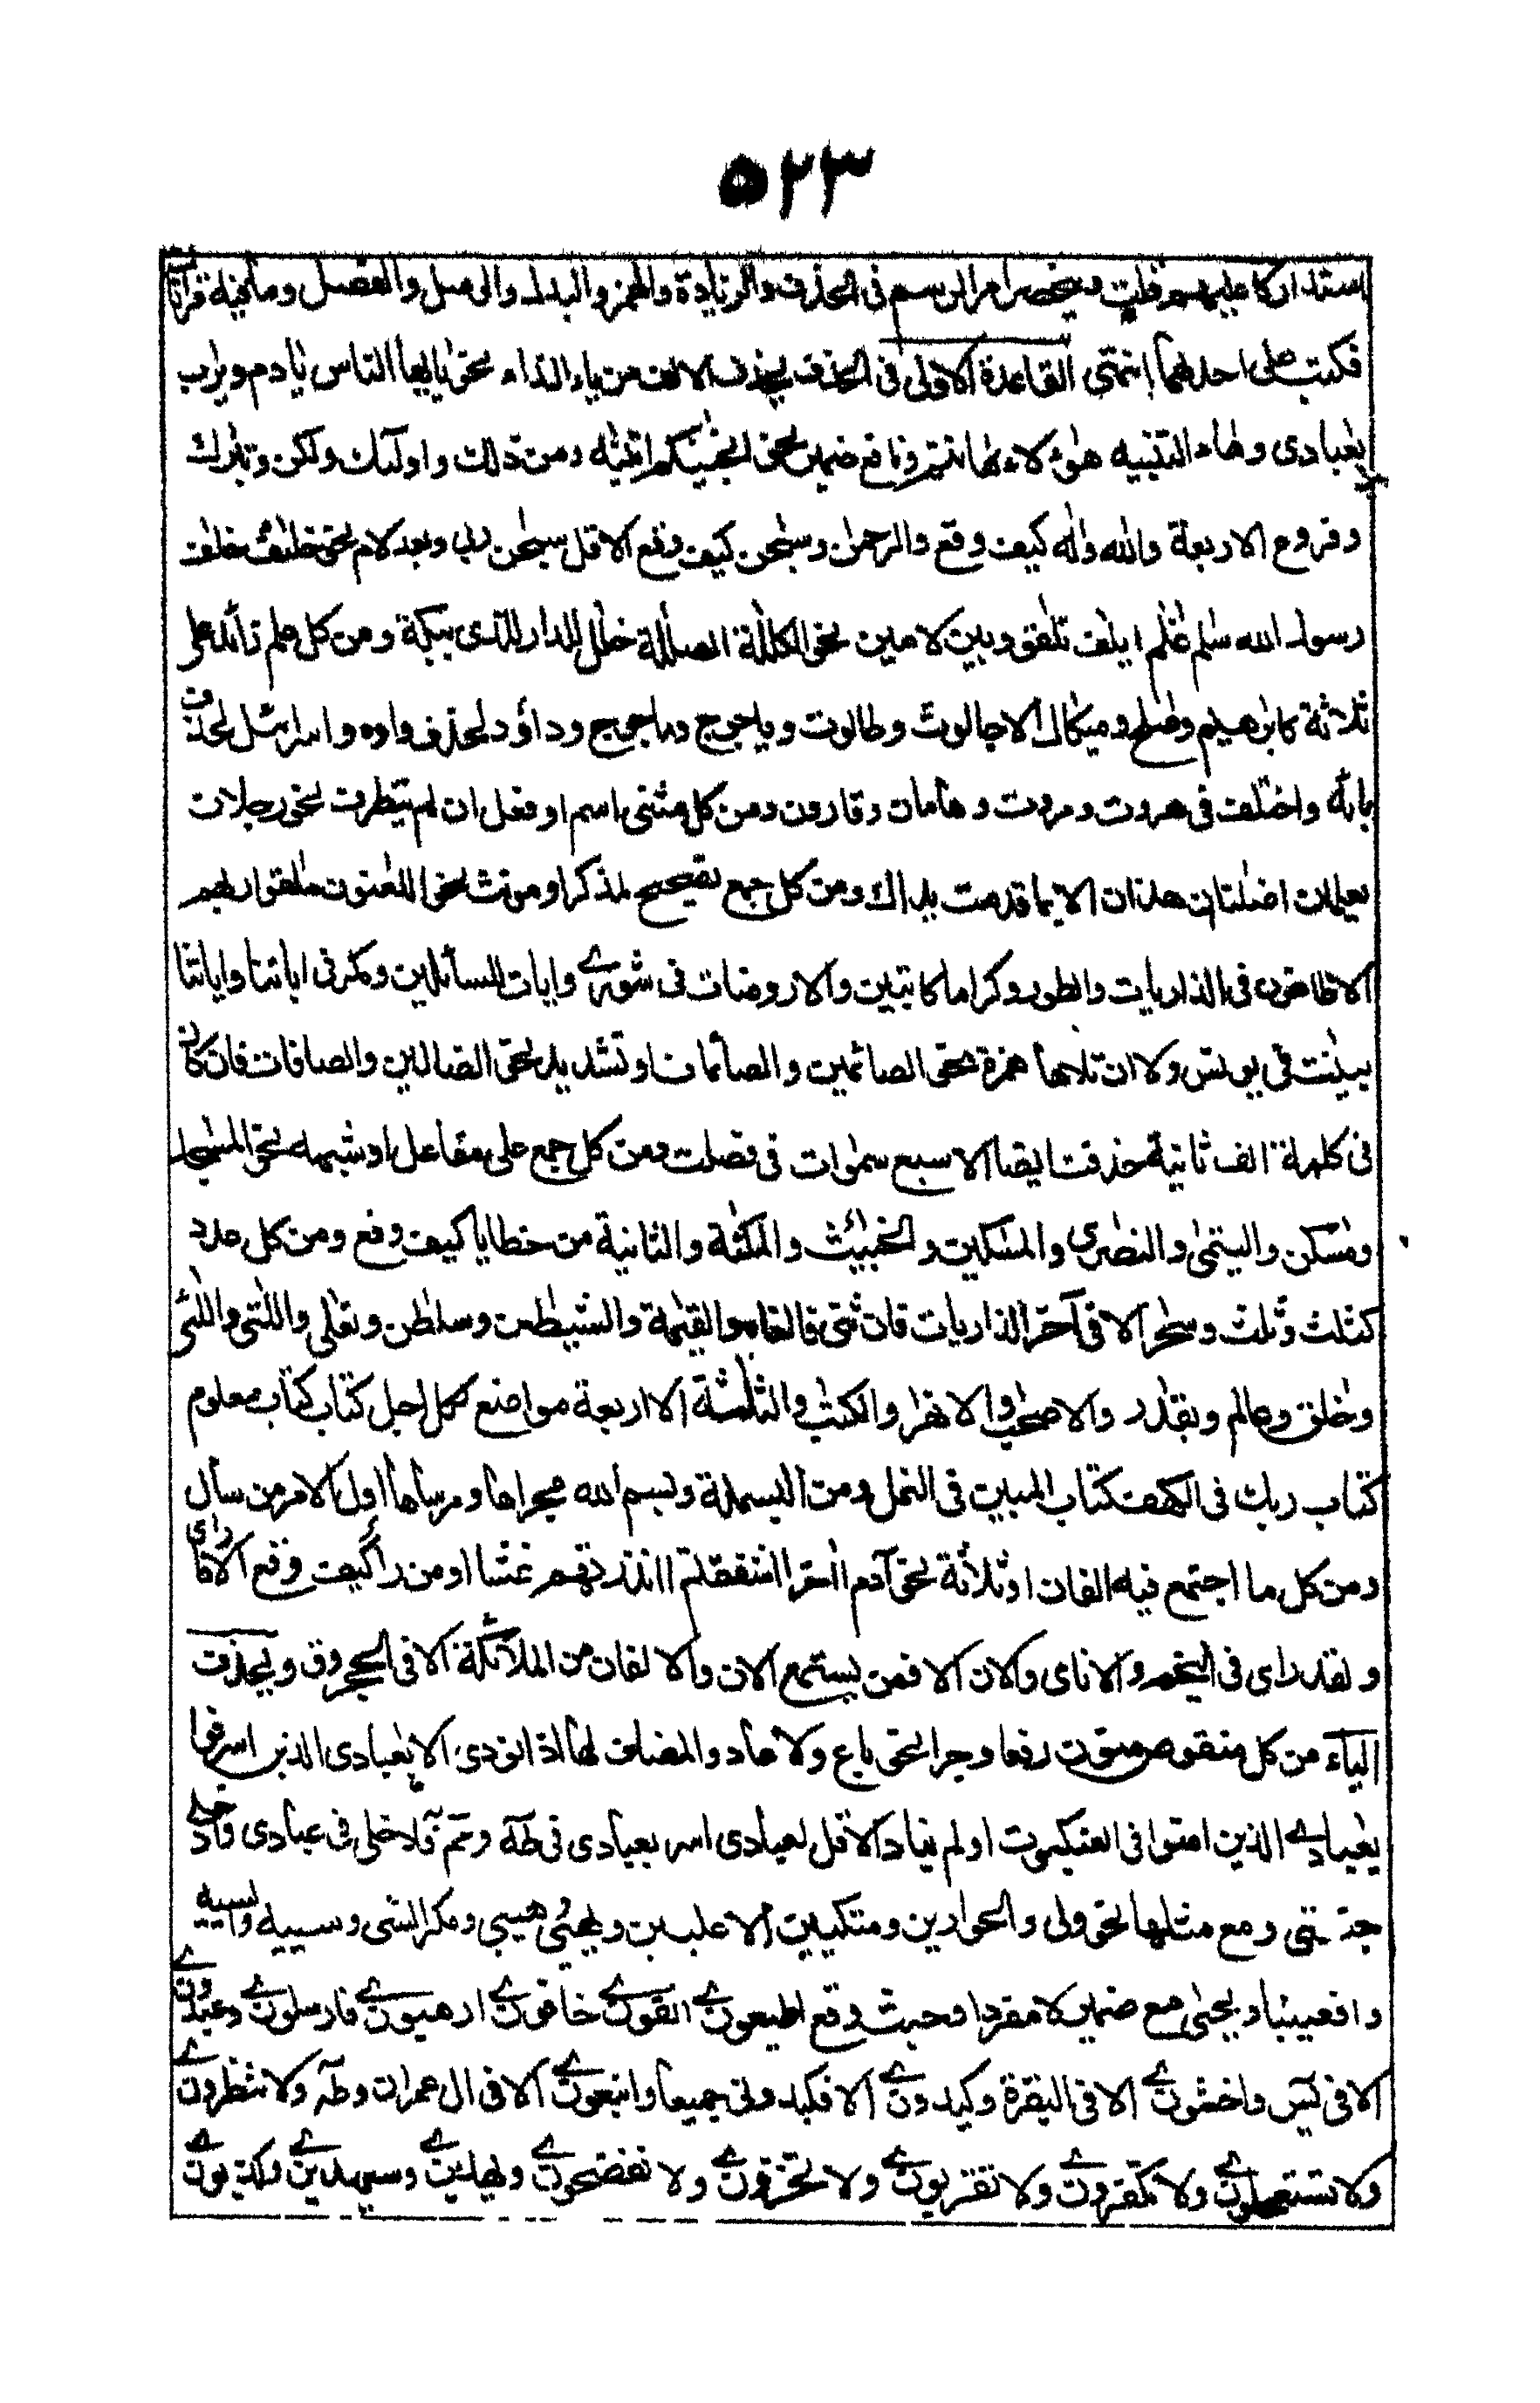 ٥٢٣
استدراكا عليهم قلت وينحصر امر الرسم فى الحذف والزيادة والهمز والبدل والوصل والفصل وما فيه قراتان
فكتب على احدهما انتهى القاعدة الاولى فى الحذف يحذف الالف من ياء النداء نحو يايها الناس يادم ويرب
يعبادى وهاء التنبيه هؤلاء هانتم ونا مع ضمير نحو انجينكم اتينه ومن ذلك واولئك ولكن وتبرك
وفروع الاربعة والله واله كيف وقع والرحمن وسبحن كيف وقع الا قل سبحن ربى وبعد لام نحو خلئف خلف
رسول الله سلم غلم ايلف تلقو وبين لامين نحو الكللة الضللة خلل للدار للذى ببكة ومن كل علم زائد على
ثلاثة كابرهيم وصلح وميكال الا جالوت وطالوت وياجوج وماجوج وداؤد لحذف واوه واسرائيل لحذف
يائه واختلف فى هروت ومروت وهامان وقارون ومن كل مثنى اسم او فعل ان لم يتطرف نحو رجلان
يعلمان اضلنا ان هذان الا بما قدمت يداك ومن كل جمع تصحيح لمذكر او مونث نحو اللعنون ملقوا ربهم
الا طاغون فى الذاريات والطور وكراما كاتبين والا روضات فى شورى وايات للسائلين ومكر فى اياتنا واياتنا
بينت فى يونس ولا ان تلاها همزة نحو الصائمين والصائمات او تشديد نحو الضالين والصافات فان كان
فى كلمة الف ثانية حذفت ايضا الا سبع سموات فى فصلت ومن كل جمع على مفاعل او شبهه نحو المسجد
ومسكن واليتمى والنصرى والمسكين والخبيث والملئكة والثانية من خطايا كيف وقع ومن كل عدد
كثلث وثلث وسحر الا فى آخر الذاريات فان ثنى فالفاه والقيمة والشيطن وسلطن وتعلى واللتى والئى
وخلق وعالم وبقدر والاصحب والانهر والكتب والثلثة الا اربعة مواضع لكل اجل كتاب كتاب معلوم
كتاب ربك فى الكهف كتاب المبين فى النمل ومن البسملة وبسم الله مجراها ومرساها اول الامر من سأل
ومن كل ما اجتمع فيه الفان او ثلاثة نحو آدم اخر اشفقتم انذرتهم غثا او من را كيف وقع الا ما راى
ولقد راى فى النجم والا ناى والان الا فمن يستمع الان والالفان من الملائكة الا فى الحجر وق ويحذف
الياء من كل منقوص منون رفعا وجرا نحو باغ ولا عاد والمضاف لها اذا نودى الا يعبادى الذين اسرفوا
يعبادى الذين امنوا فى العنكبوت او لم يناد الا قل لعبادى اسر بعبادى فى طه وحم فادخلى فى عبادى وادخلى
جنتى ومع مثلها نحو ولى والحوارين ومتكئين الا عليين ويهيئ وهيئ ومكر السئ وسيئه والسيئه
وافعيينا ويحيى مع ضمير لا مفردا وحيث وقع اطيعون اتقون خافون ارهبون فارسلون واعبدون
الا فى يس واخشون الا فى البقرة وكيدون الا فكيدونى جميعا واتبعون الا فى ال عمران وطه ولا تنظرون
ولا تستعجلون ولا تكفرون ولا تقربون ولا تخزون ولا تفضحون ويهدين وسيهدين وكذبون